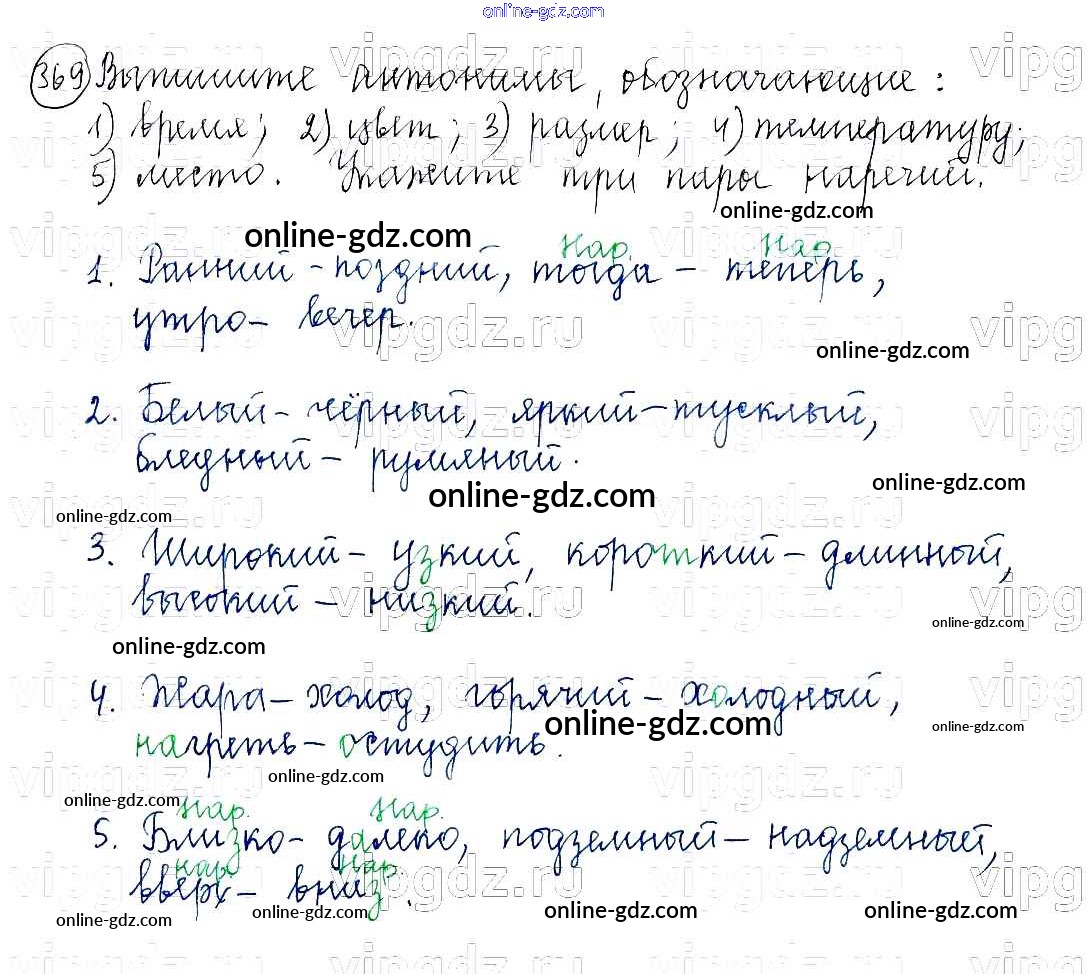 online-gdz.com
369 Выпишите антонимы, обозначающие:
1) время; 2) цвет; 3) размер; 4) температуру;
5) место. Укажите три пары наречий.
online-gdz.com
online-gdz.com
нар. нар.
1. Ранний - поздний, тогда - теперь,
утро - вечер.
vipgdz.ru
online-gdz.com
2. Белый - чёрный, яркий - тусклый,
бледный - румяный.
online-gdz.com
online-gdz.com
online-gdz.com
3. Широкий - узкий, короткий - длинный,
высокий - низкий.
vipgdz.ru
online-gdz.com
online-gdz.com
4. Жара - холод, горячий - холодный,
online-gdz.com
online-gdz.com
нагреть - остудить.
online-gdz.com
online-gdz.com
нар. нар.
5. Близко - далеко, подземный - надземный,
нар. нар.
вверх - вниз.
online-gdz.com
online-gdz.com
online-gdz.com
online-gdz.com